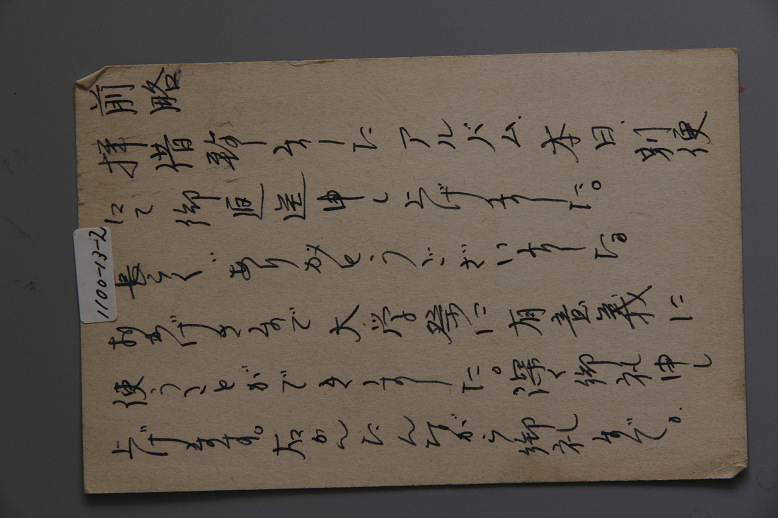 前略
拝借致しましたアルバム本日別便
にて御返送申し上げました。
長らくありがとうございました。
おかげさまで大学祭に有意義に
使うことができました。深く御礼申し
上げます。右かんたんながら御礼まで。
1100-13-2